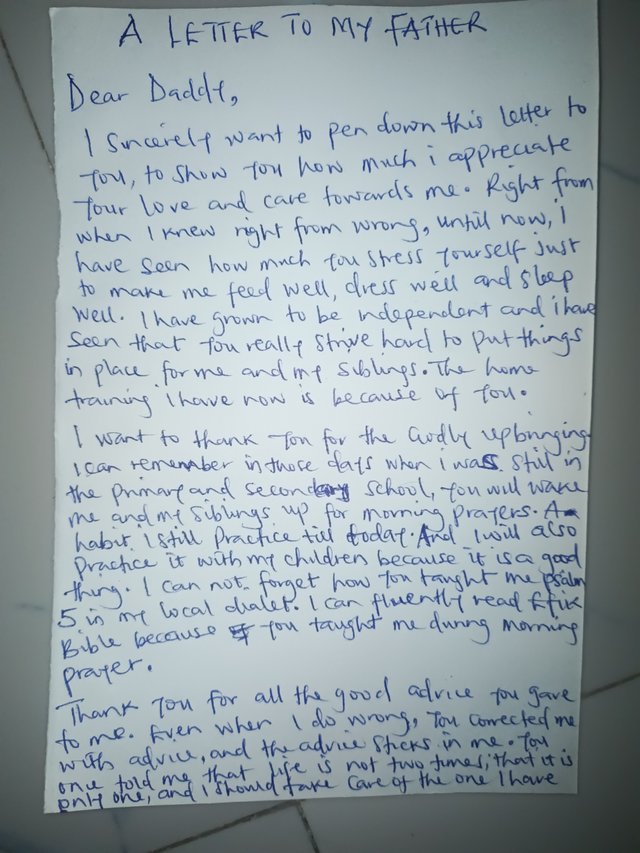 A LETTER TO MY FATHER
Dear Daddy,
I sincerely want to pen down this letter to
you, to show you how much i appreciate
your love and care towards me. Right from
when I knew right from wrong, until now, I
have seen how much you stress yourself just
to make me feed well, dress well and sleep
well. I have grown to be independent and i have
seen that you really strive hard to put things
in place for me and my siblings. The home
training I have now is because of you.
I want to thank you for the Godly upbringing.
I can remember in those days when i was still in
the primary and secondary school, you will wake
me and my siblings up for morning prayers. A
habit I still practice till today. And I will also
practice it with my children because it is a good
thing. I can not forget how you taught me psalm
5 in my local dialet. I can fluently read Efik
Bible because you taught me during morning
prayer.
Thank you for all the good advice you gave
to me. Even when I do wrong, you corrected me
with advice, and the advice sticks in me. You
once told me that life is not two times, that it is
only one, and i should take care of the one I have